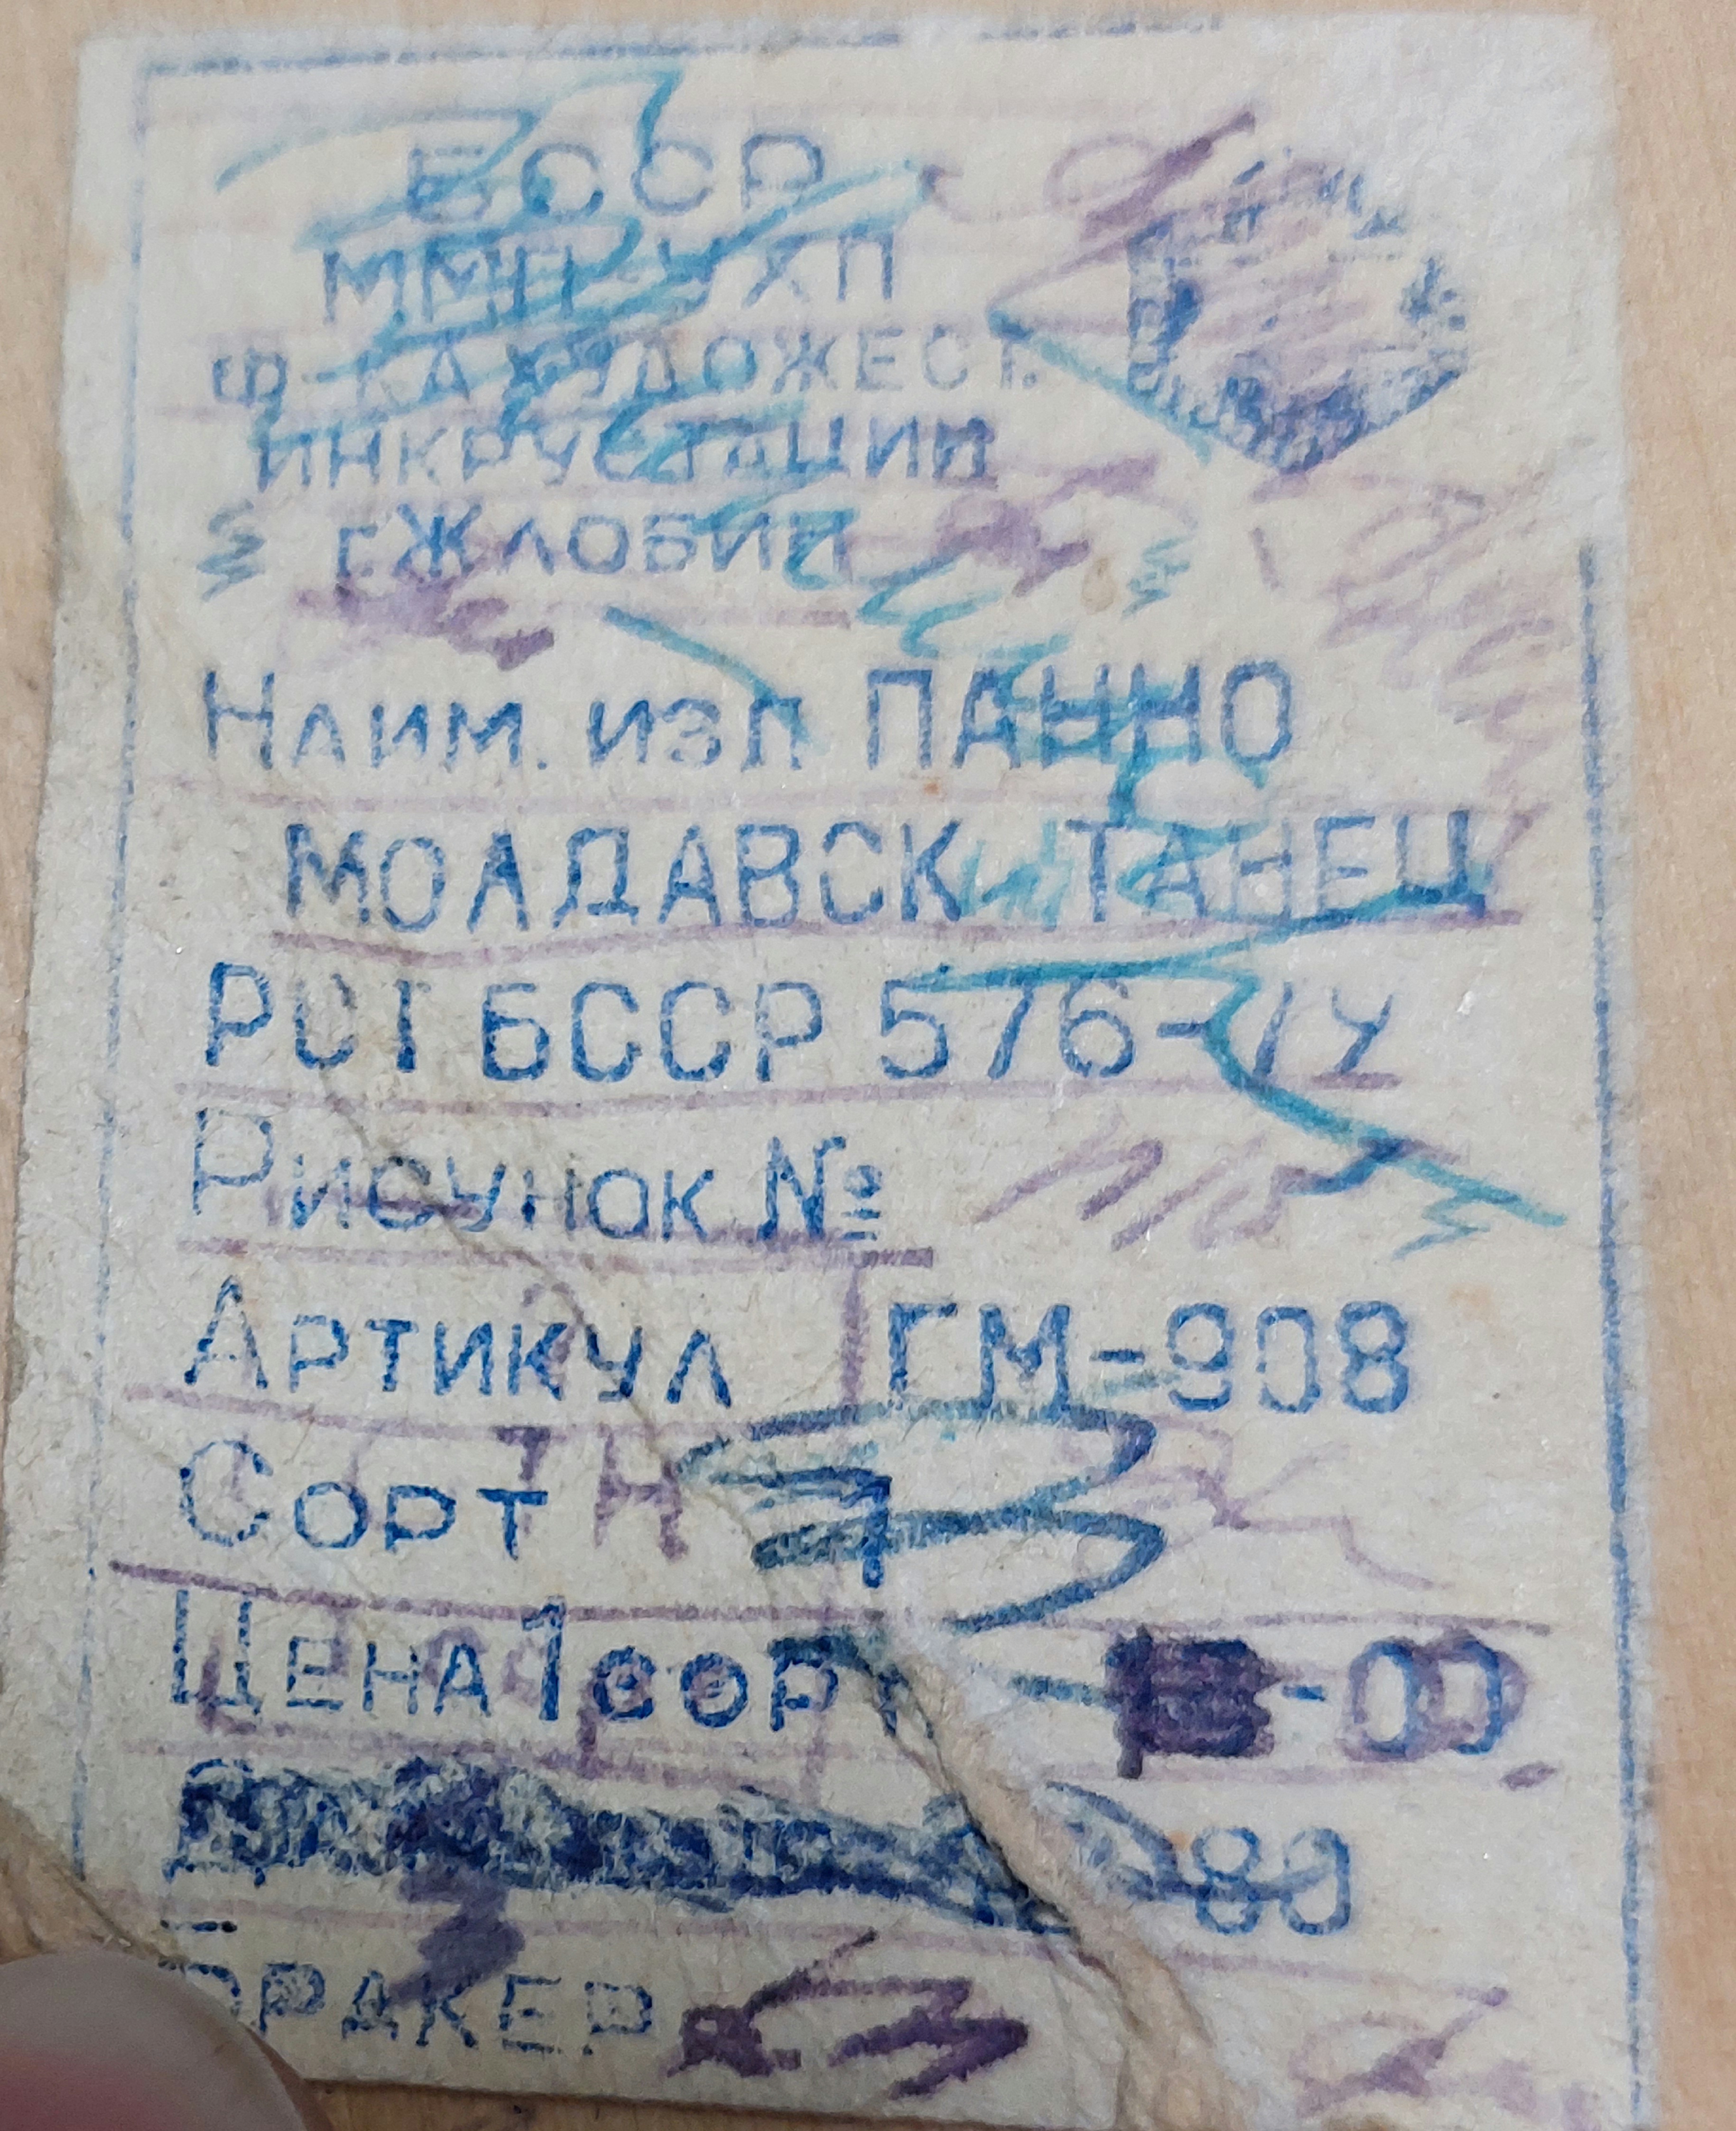 БССР
ММП УХП
Ф-КА ХУДОЖЕСТ.
ИНКРУСТАЦИИ
г.ЖЛОБИН
НАИМ. ИЗД ПАННО
МОЛДАВСК ТАНЕЦ
РСТ БССР 576-
РИСУНОК №
АРТИКУЛ ГМ-908
СОРТ 1
ЦЕНА 1 СОРТ -00
80
БРАКЕР